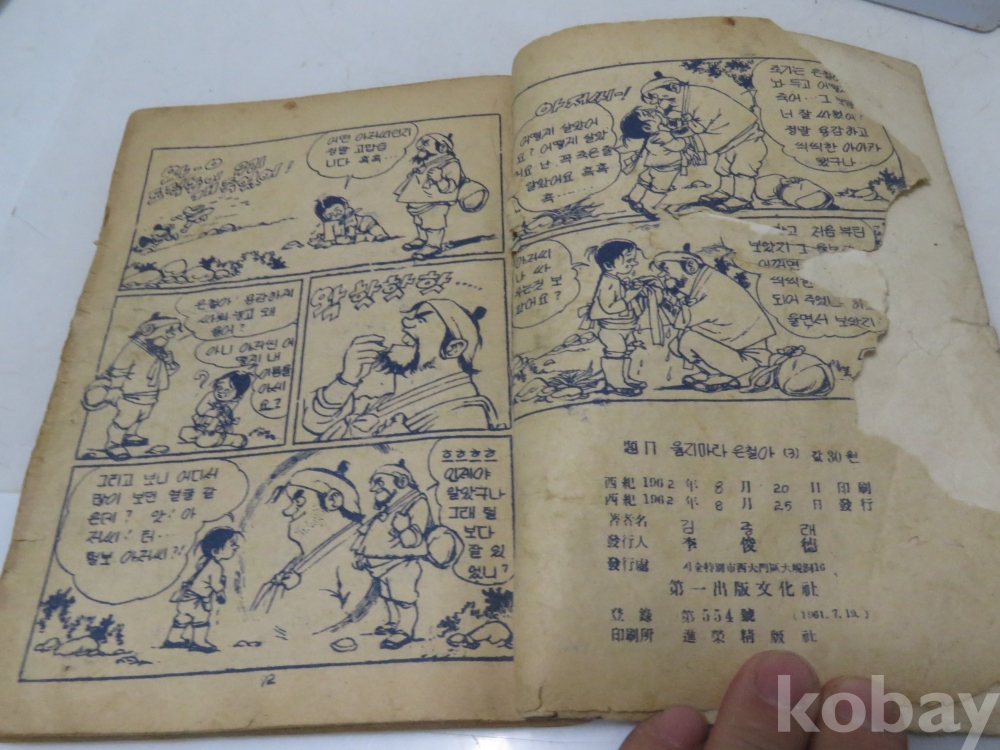 어떤 아저씨인지
정말 고맙습
니다 흑흑…
은철아 용감하게
싸워 놓고 왜
울어?
아니 아저씬 어
떻게 내
이름을
아세
요?
왁하하하……
그리고 보니 어디서
많이 보던 얼굴 같
은데? 앗! 아
저씨! 터…
털보 아저씨?!
흐흐흐흐
인제야
알았구나
그래 털
보다
잘 있
었니?
12
아저씨!
어떻게 살았어
요? 어떻게 살았
어요 난 꼭 죽은줄
알았어요 흑흑
흑……
죽기는 은철
놔 두고 어떻
죽어… 그
너 잘 싸웠어!
정말 용감하고
씩씩한 아이가
됐구나…
아저씨
나 싸
우는것 보
았어요?
하고 처음부터
보았지
씩씩한
되어 주었
울면서 보았지
題目 울지마라 은철아 (3) 값 30원
西紀 1962年 8月 20日 印刷
西紀 1962年 8月 25日 發行
著者名 김종래
發行人 李俊
發行處 서울特別市西大門區大峴洞16
第一出版文化社
登錄 第554號 (1961.7.19.)
印刷所 進榮精版社
kobay